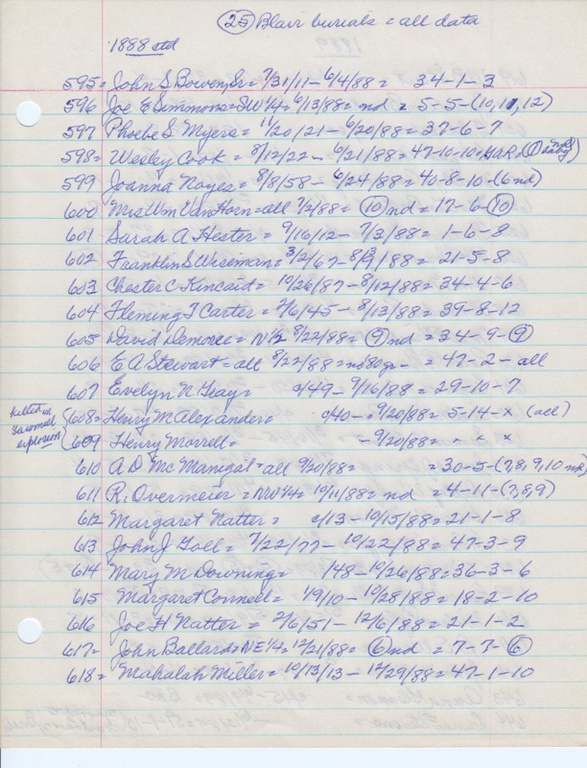 (25) Blair burials = all data
1888 ctd
595 = John S Bowen, Sr = 7/31/11 - 6/4/88 = 34-1-3
596 Joe E Simmons = SW 1/4 = 6/13/88 = nd = 5-5-(10,11,12)
597 Phoebe S. Myers = 11/20/21 - 6/20/88 = 37-6-7
598 = Wesley Cook = 8/12/22 - 6/21/88 = 47-10-10 = GAR =
599 Joanna Noyes = 8/8/58 - 6/24/88 = 40-8-10 = (6 nd)
600 Mrs Wm VanHorn = all 7/2/88 = (10) nd = 17-6-(10)
601 Sarah A Hester = 9/16/12 - 7/3/88 = 1-6-8
602 Franklin S Wiseman = 3/2/67 - /88 = 21-5-8
603 Chester C Kincaid = 10/26/87 - 8/12/88 = 34-4-6
604 Fleming T Carter = 2/6/45 - 8/13/88 = 39-8-12
605 David Demoree = N 1/2 8/22/88 = (9) nd = 34-9-(9)
606 E A Stewart = all 8/22/88 = = 47-2-all
607 Evelyn N Gray = c/49 - 9/16/88 = 29-10-7
killed in
(608 = Henry M Alexander = c/40 - 9/20/88 = 5-14-x (all)
explosion
(609 Henry Morrell = - 9/20/88 = - x x
610 A D McManigal = all 9/20/88 = = 30-5-(7,8,9,10 nd)
611 R. Overmeier = NW 1/4 = 10/11/88 = nd = 4-11-(7,8,9)
612 Margaret Natter = c/13 - 10/15/88 = 21-1-8
613 John J Goll = 7/22/77 - 10/22/88 = 47-3-9
614 Mary M Downing = /48 - 10/26/88 = 36-3-6
615 Margaret Conneel = 1/9/10 - 10/28/88 = 18-2-10
616 Joe H Natter = 2/6/51 - 12/6/88 = 21-1-2
617 = John Ballard = NE 1/4 = 12/21/88 = (6) nd = 7-7-(6)
618 = Mahalah Miller = 10/13/13 - 12/29/88 = 47-1-10